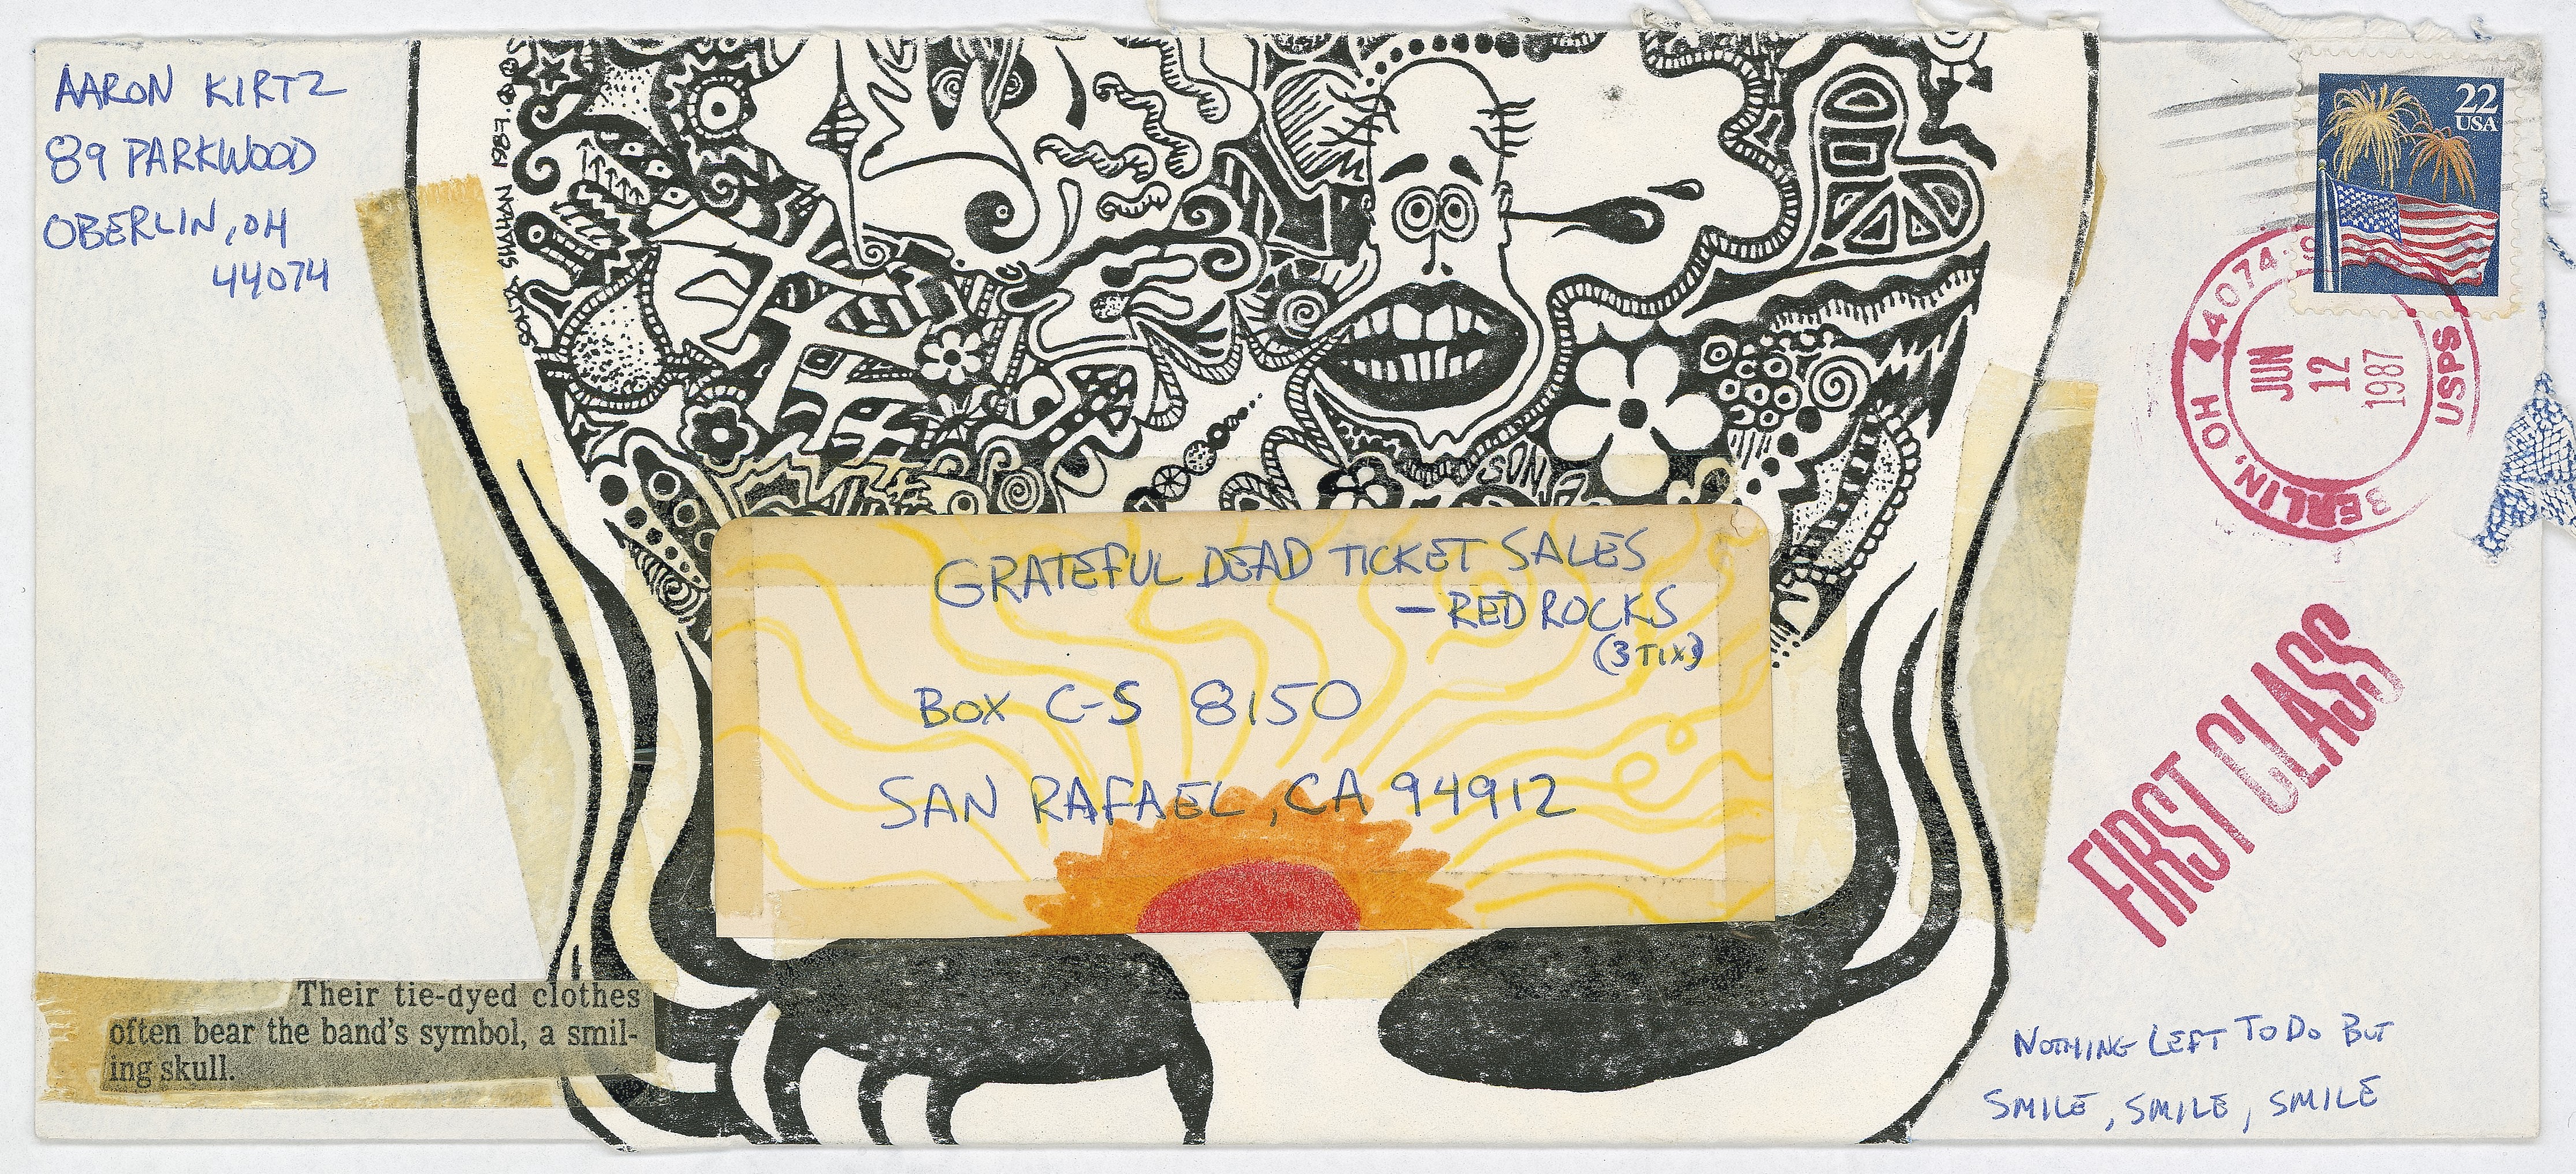 AARON KIRTZ
89 PARKWOOD
OBERLIN, OH
44074
SIVAHAN 1987.
22
USA
44074
OBERLIN, OH
USPS
JUN
12
1987
SUN
GRATEFUL DEAD TICKET SALES
— RED ROCKS
(3 TIX)
BOX C-S 8150
SAN RAFAEL, CA 94912
FIRST CLASS
Their tie-dyed clothes
often bear the band's symbol, a smil-
ing skull.
NOTHING LEFT TO DO BUT
SMILE, SMILE, SMILE